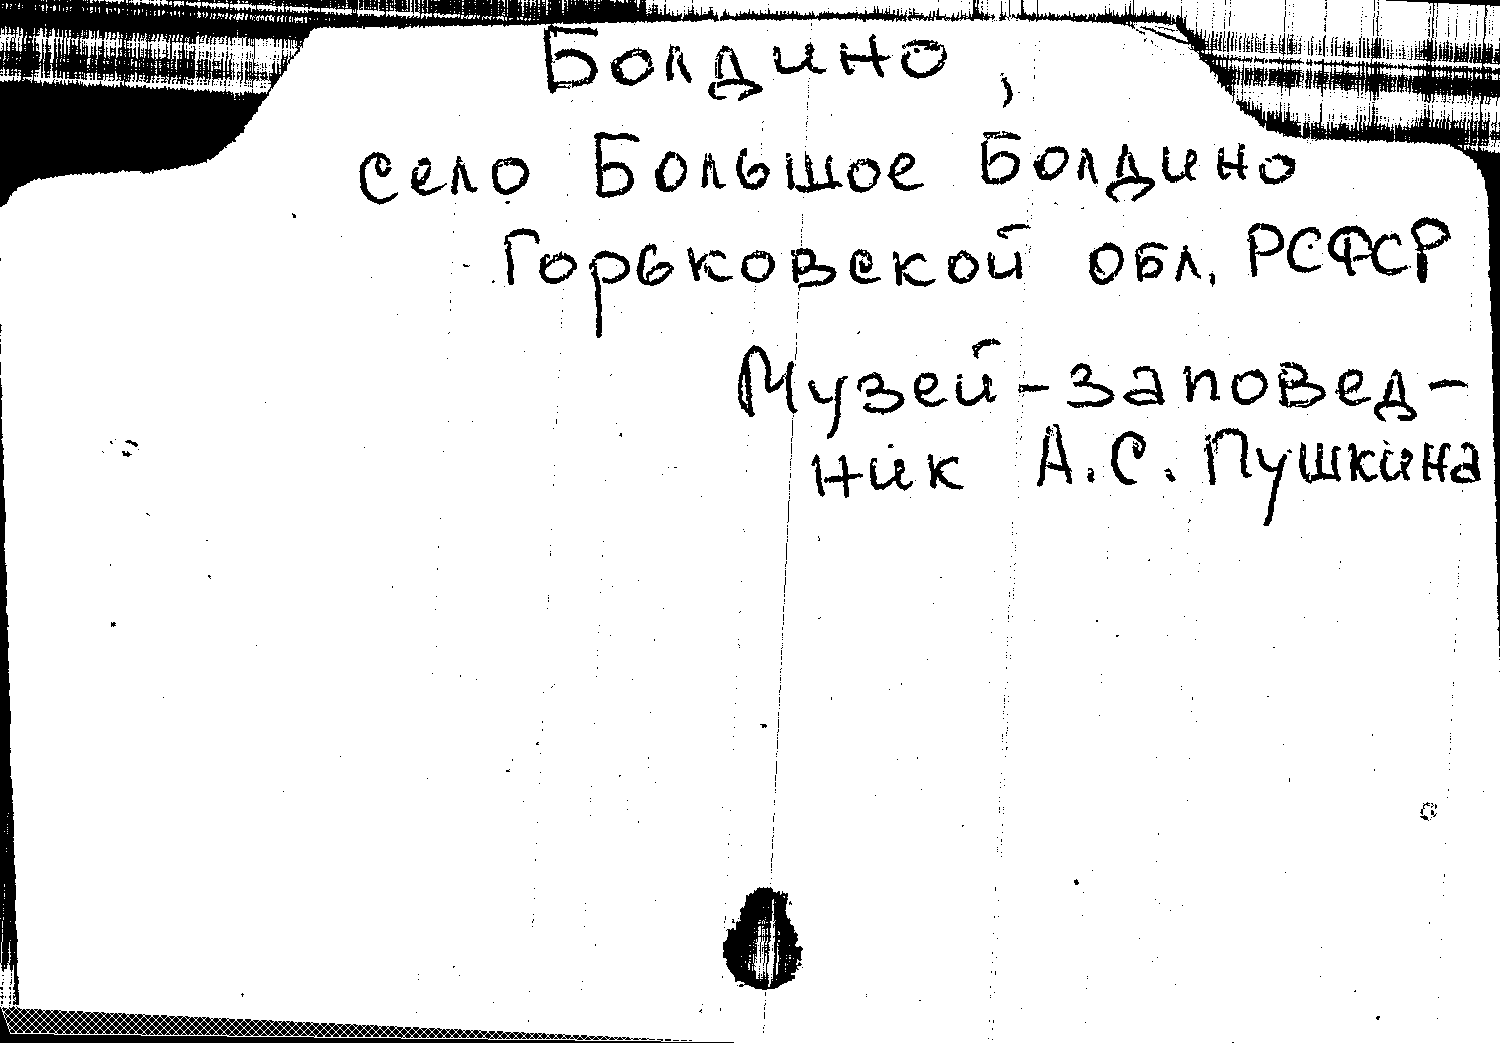 Болдино,
село Большое Болдино
Горьковской обл. РСФСР
Музей-заповед-
ник А.С. Пушкина